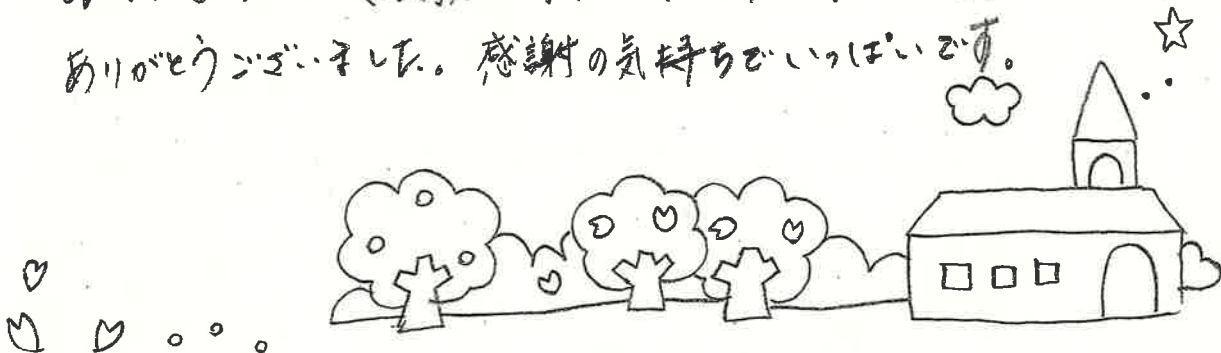 ありがとうございました。感謝の気持ちでいっぱいです。